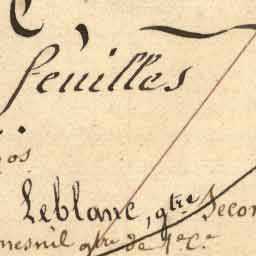 feuilles
os
Leblanc, qtre Secon
mesnil qtre de 4e C.e